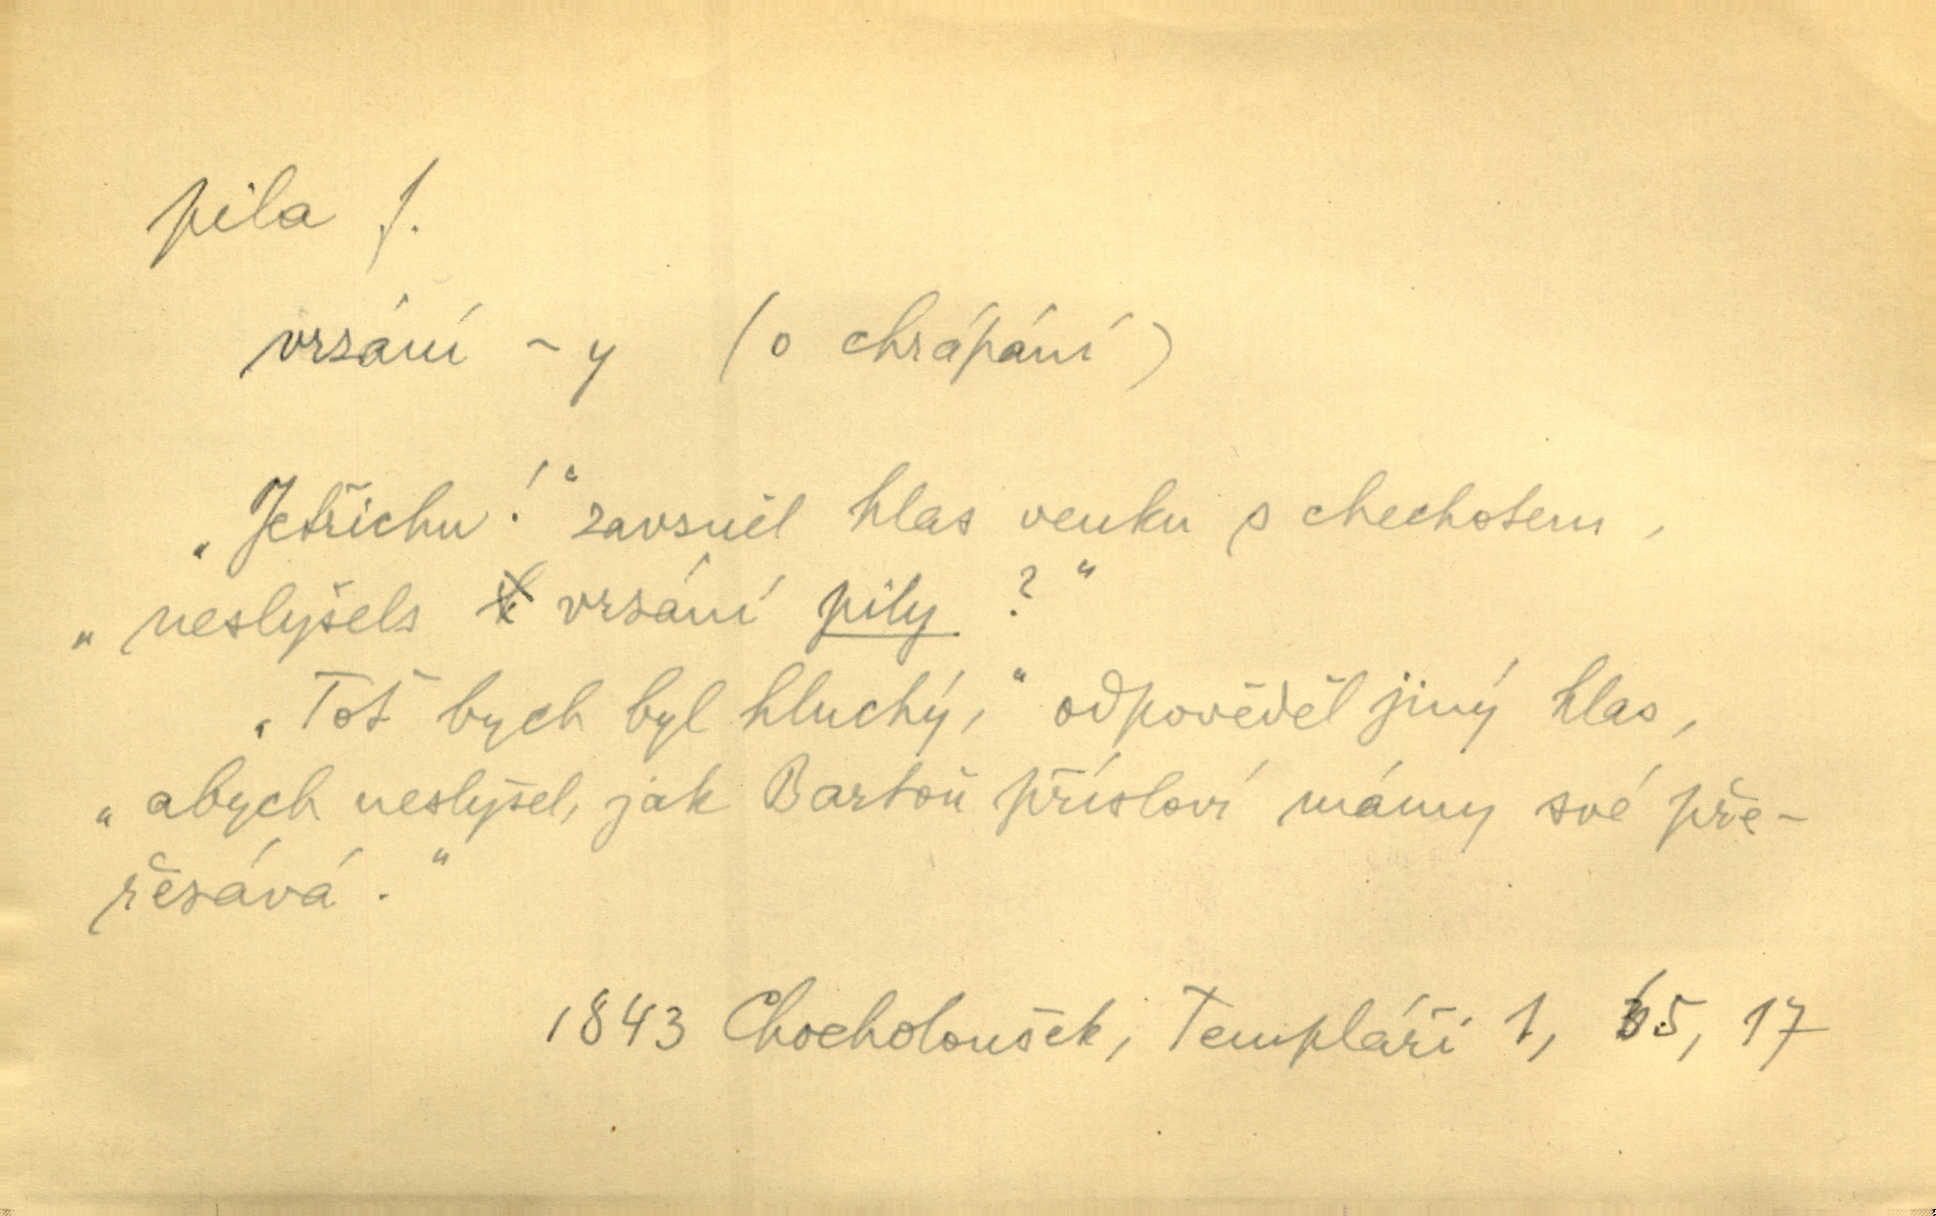 pila f.
vrzání -y (o chrápání)
„Jetřichu!“ zavzněl hlas venku s chechotem,
„neslyšels vrzání pily?“
„Toť bych byl hluchý,“ odpověděl jiný hlas,
„abych neslyšel, jak Bartoň přísloví mámy své pře-
řezává.“
1843 Chocholoušek, Templáři 1, 65, 17